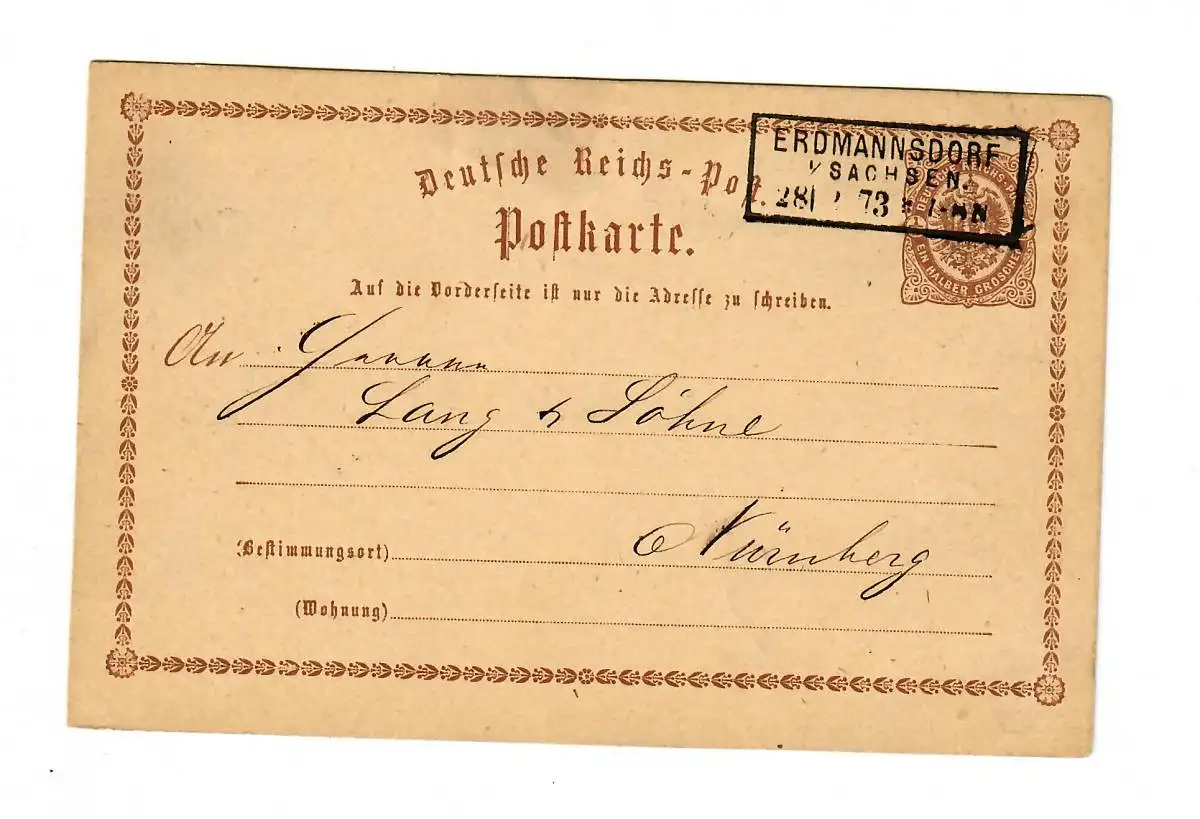 Deutsche Reichs-Post.
ERDMANNSDORF
I/SACHSEN.
28| 73 * 7-8N
DEUTSCHE REICHS-POST
EIN HALBER GROSCHEN
Postkarte.
Auf die Vorderseite ist nur die Adresse zu schreiben.
An
Lang & Söhne
(Bestimmungsort) Nürnberg
(Wohnung)